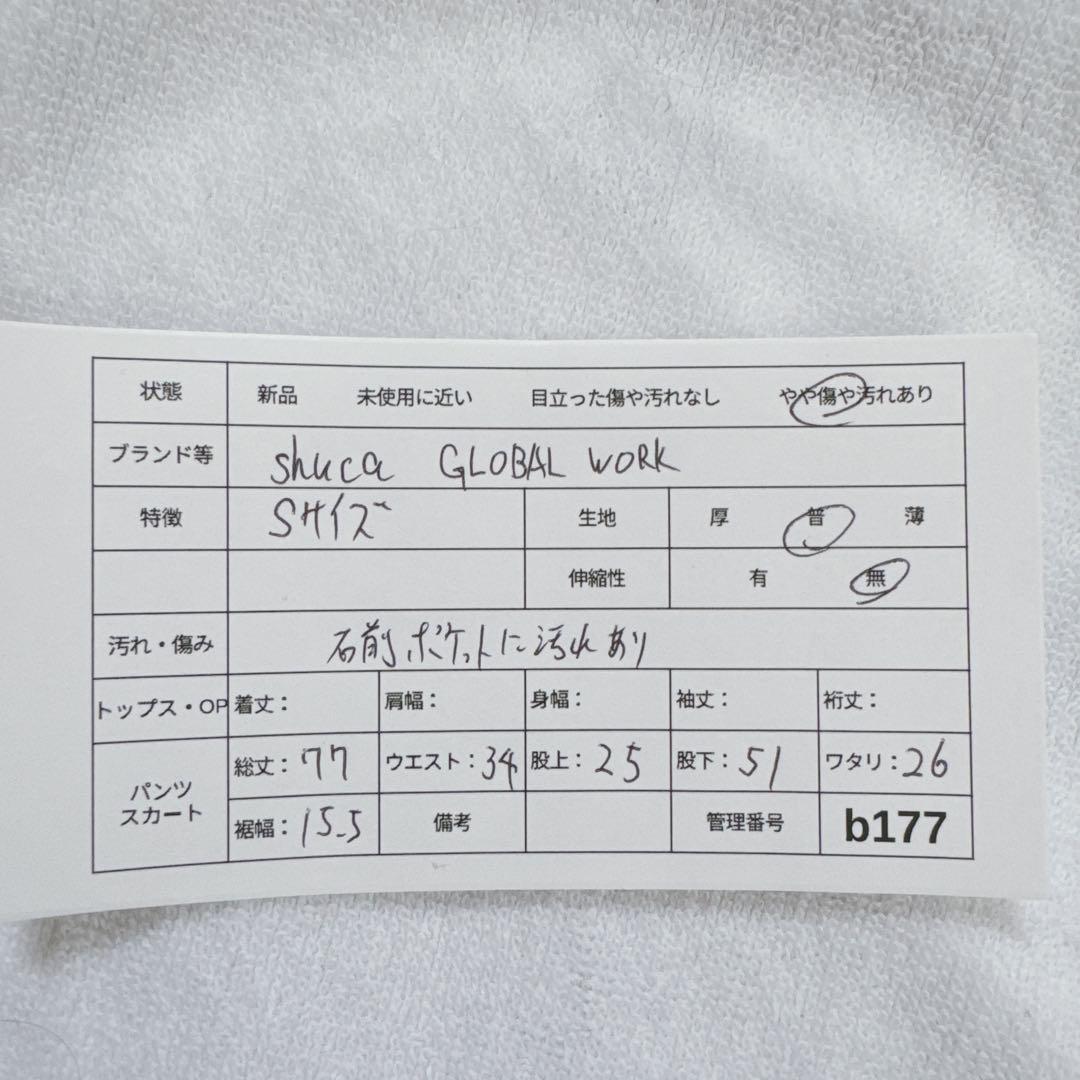 状態 新品 未使用に近い 目立った傷や汚れなし やや傷や汚れあり
ブランド等 shuca GLOBAL WORK
特徴 Sサイズ 生地 厚 普 薄
伸縮性 有 無
汚れ・傷み 右前ポケットに汚れあり
トップス・OP 着丈： 肩幅： 身幅： 袖丈： 裄丈：
パンツ スカート 総丈：77 ウエスト：34 股上：25 股下：51 ワタリ：26
裾幅：15.5 備考 管理番号 b177